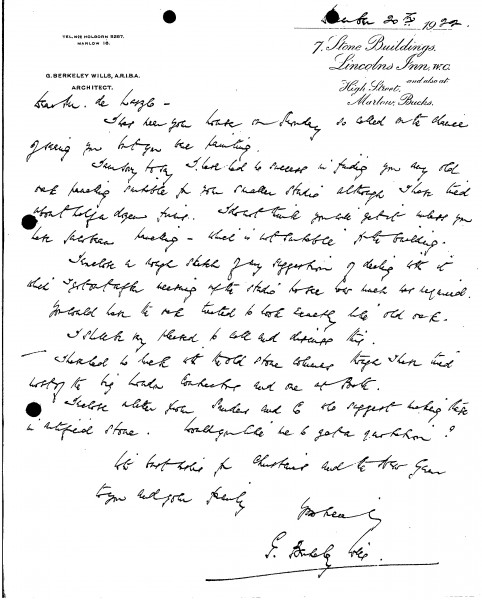 December 20th 1922
TEL. Nos HOLBORN 5257.
MARLOW 18.
7, Stone Buildings,
Lincolns Inn, W.C.
and also at
High Street,
Marlow, Bucks.
G. BERKELEY WILLS, A.R.I.B.A.
ARCHITECT.
Dear Mr. de Laszlo –
I was near your house on Sunday so called on the chance
of seeing you but you were painting.
I am sorry to say I have had no success in finding you any old
oak panelling suitable for your smaller studio although I have tried
about half a dozen firms. I do not think you will get it unless you
have Jacobean panelling – which is not suitable to the building.
I enclose a rough sketch of my suggestion of dealing with it
which I got out after measuring up the studio to see how much was required.
You could have the oak treated to look exactly like old oak.
I shall be very pleased to call and discuss this.
I have had no luck with the old stone columns though I have tried
most of the big London Contractors and one at Bath.
I enclose a letter from and Co who suggest making these
in artificial stone. Would you like me to get a quotation?
With best wishes for Christmas and the New Year
to you and your family
Yours sincerely
G. Berkeley Wills.